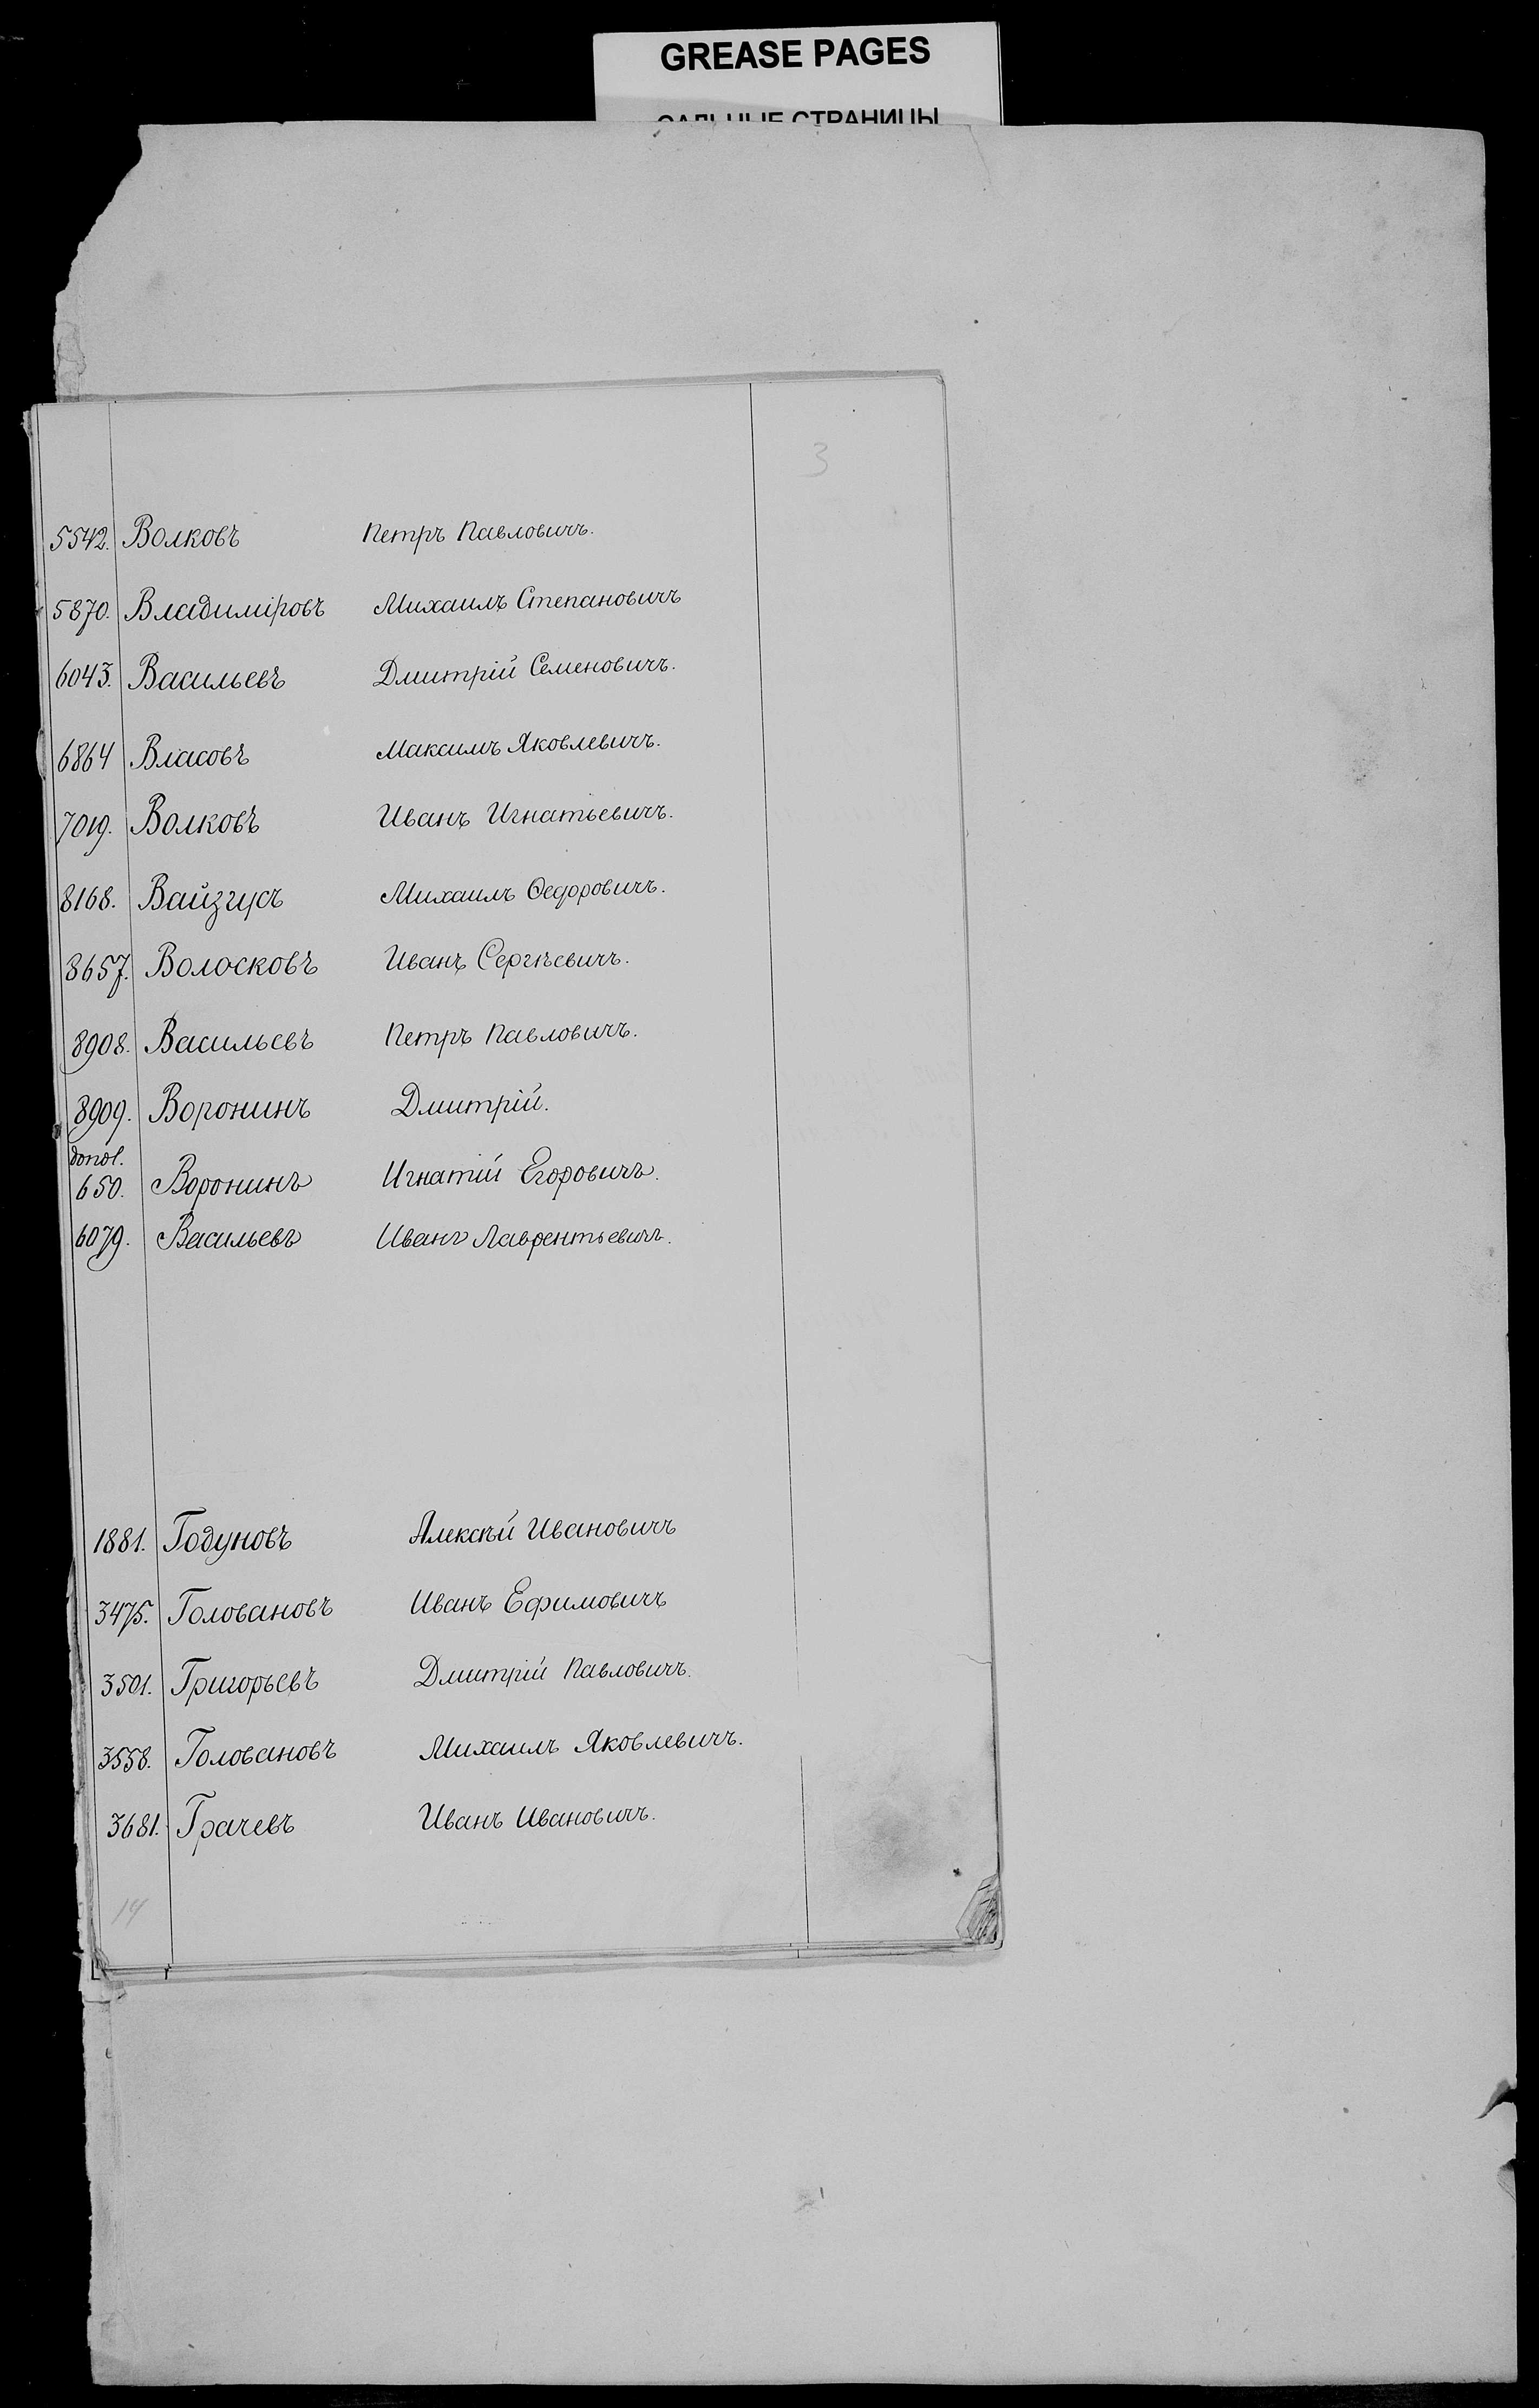 GREASE PAGES
САЛЬНЫЕ СТРАНИЦЫ
3
5542. Волковъ Петръ Павловичъ.
5870. Владиміровъ Михаилъ Степановичъ
6043. Васильевъ Дмитрій Семеновичъ.
6864 Власовъ Максимъ Яковлевичъ.
7019. Волковъ Иванъ Игнатьевичъ.
8168. Вайзгусъ Михаилъ Ѳедоровичъ.
8657. Волосковъ Иванъ Сергѣевичъ.
8908. Васильевъ Петръ Павловичъ.
8909. Воронинъ Дмитрій.
допол.
650. Воронинъ Игнатій Егоровичъ.
6079. Васильевъ Иванъ Лаврентьевичъ.
1881. Годуновъ Алексѣй Ивановичъ
3475. Головановъ Иванъ Ефимовичъ
3501. Григорьевъ Дмитрій Павловичъ.
3558. Головановъ Михаилъ Яковлевичъ.
3681. Грачевъ Иванъ Ивановичъ.
14